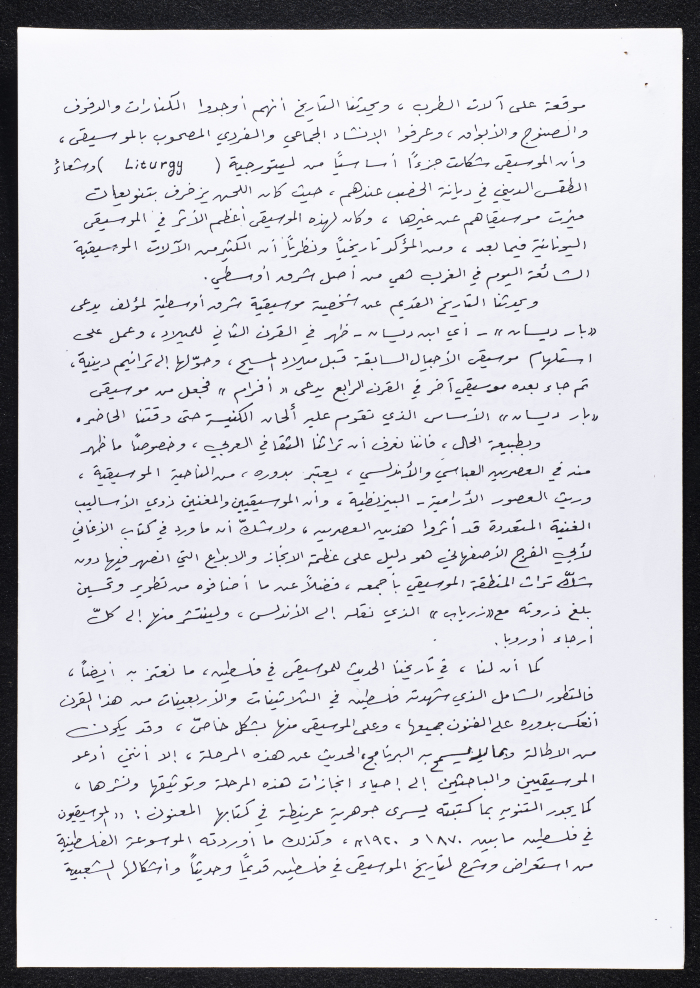 موقعة على آلات الطرب ، ويحدثنا التاريخ أنهم أوجدوا الكنارات والدفوف
والصنوج والأبواق ، وعرفوا الإنشاد الجماعي والفردي المصحوب بالموسيقى ،
وأن الموسيقى شكلت جزءًا أساسيًا من ليتورجية ( Liturgy ) وشعائر
الطقس الديني في ديانة الخصب عندهم ، حيث كان اللحن يزخرف بتنويعات
ميزت موسيقاهم عن غيرها ، وكان لهذه الموسيقى أعظم الأثر في الموسيقى
اليونانية فيما بعد ، ومن المؤكد تاريخيًا ونظريًا أن الكثير من الآلات الموسيقية
الشائعة اليوم في الغرب هي من أصل شرق أوسطي .
ويحدثنا التاريخ القديم عن شخصية موسيقية شرق أوسطية لمؤلف يدعى
«بار ديسان» - أي ابن ديسان - ظهر في القرن الثاني للميلاد ، وعمل على
استلهام موسيقى الأجيال السابقة قبل ميلاد المسيح ، وحوّلها إلى ترانيم دينية ،
ثم جاء بعده موسيقي آخر في القرن الرابع يدعى « أفرام » فجعل من موسيقى
«بار ديسان» الأساس الذي تقوم عليه ألحان الكنيسة حتى وقتنا الحاضر .
وبطبيعة الحال ، فاننا نعرف أن تراثنا الثقافي العربي ، وخصوصًا ما ظهر
منه في العصرين العباسي والأندلسي ، يعتبر بدوره ، من الناحية الموسيقية ،
وريث العصور الأرامية - البيزنطية ، وأن الموسيقيين والمغنين ذوي الأساليب
الفنية المتعددة قد أثروا هذين العصرين ، ولا شكّ أن ما ورد في كتاب الأغاني
لأبي الفرج الأصفهاني هو دليل على عظمة الانجاز والابداع التي انصهر فيها دون
شكّ تراث المنطقة الموسيقي بأجمعه ، فضلاً عن ما أضافوه من تطوير وتحسين
بلغ ذروته مع «زرياب» الذي نقله إلى الأندلس ، ولينتشر منها إلى كلّ
أرجاء أوروبا .
كما أن لنا ، في تاريخنا الحديث للموسيقى في فلسطين ، ما نعتز به أيضًا ،
فالتطور الشامل الذي شهدته فلسطين في الثلاثينات والأربعينات من هذا القرن
انعكس بدوره على الفنون جميعها ، وعلى الموسيقى منها بشكل خاصّ ، وقد يكون
من الاطالة وبما لا يسمح به البرنامج ، الحديث عن هذه المرحلة ، إلا أنني أدعو
الموسيقيين والباحثين إلى إحياء انجازات هذه المرحلة وتوثيقها ونشرها ،
كما يجدر التنويه بما كتبته يسرى جوهرية عرنيطة في كتابها المعنون : «الموسيقيون
في فلسطين ما بين ١٨٧٠ و ١٩٢٠» ، وكذلك ما أوردته الموسوعة الفلسطينية
من استعراض وشرح لتاريخ الموسيقى في فلسطين قديمًا وحديثًا وأشكالها الشعبية